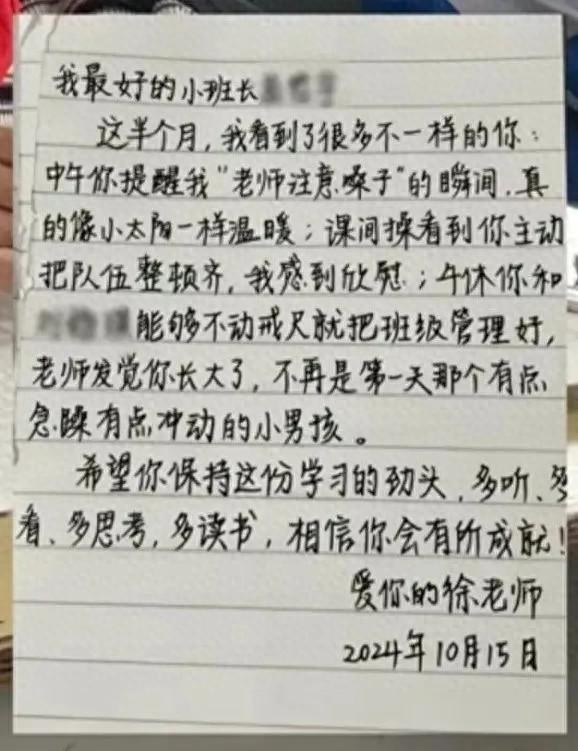 我最好的小班长
这半个月，我看到了很多不一样的你：
中午你提醒我“老师注意嗓子”的瞬间，真
的像小太阳一样温暖；课间操看到你主动
把队伍整顿齐，我感到欣慰；午休你和
能够不动戒尺就把班级管理好，
老师发觉你长大了，不再是第一天那个有点
急躁有点冲动的小男孩。
希望你保持这份学习的劲头，多听、多
看、多思考，多读书，相信你会有所成就！
爱你的徐老师
2024年10月15日